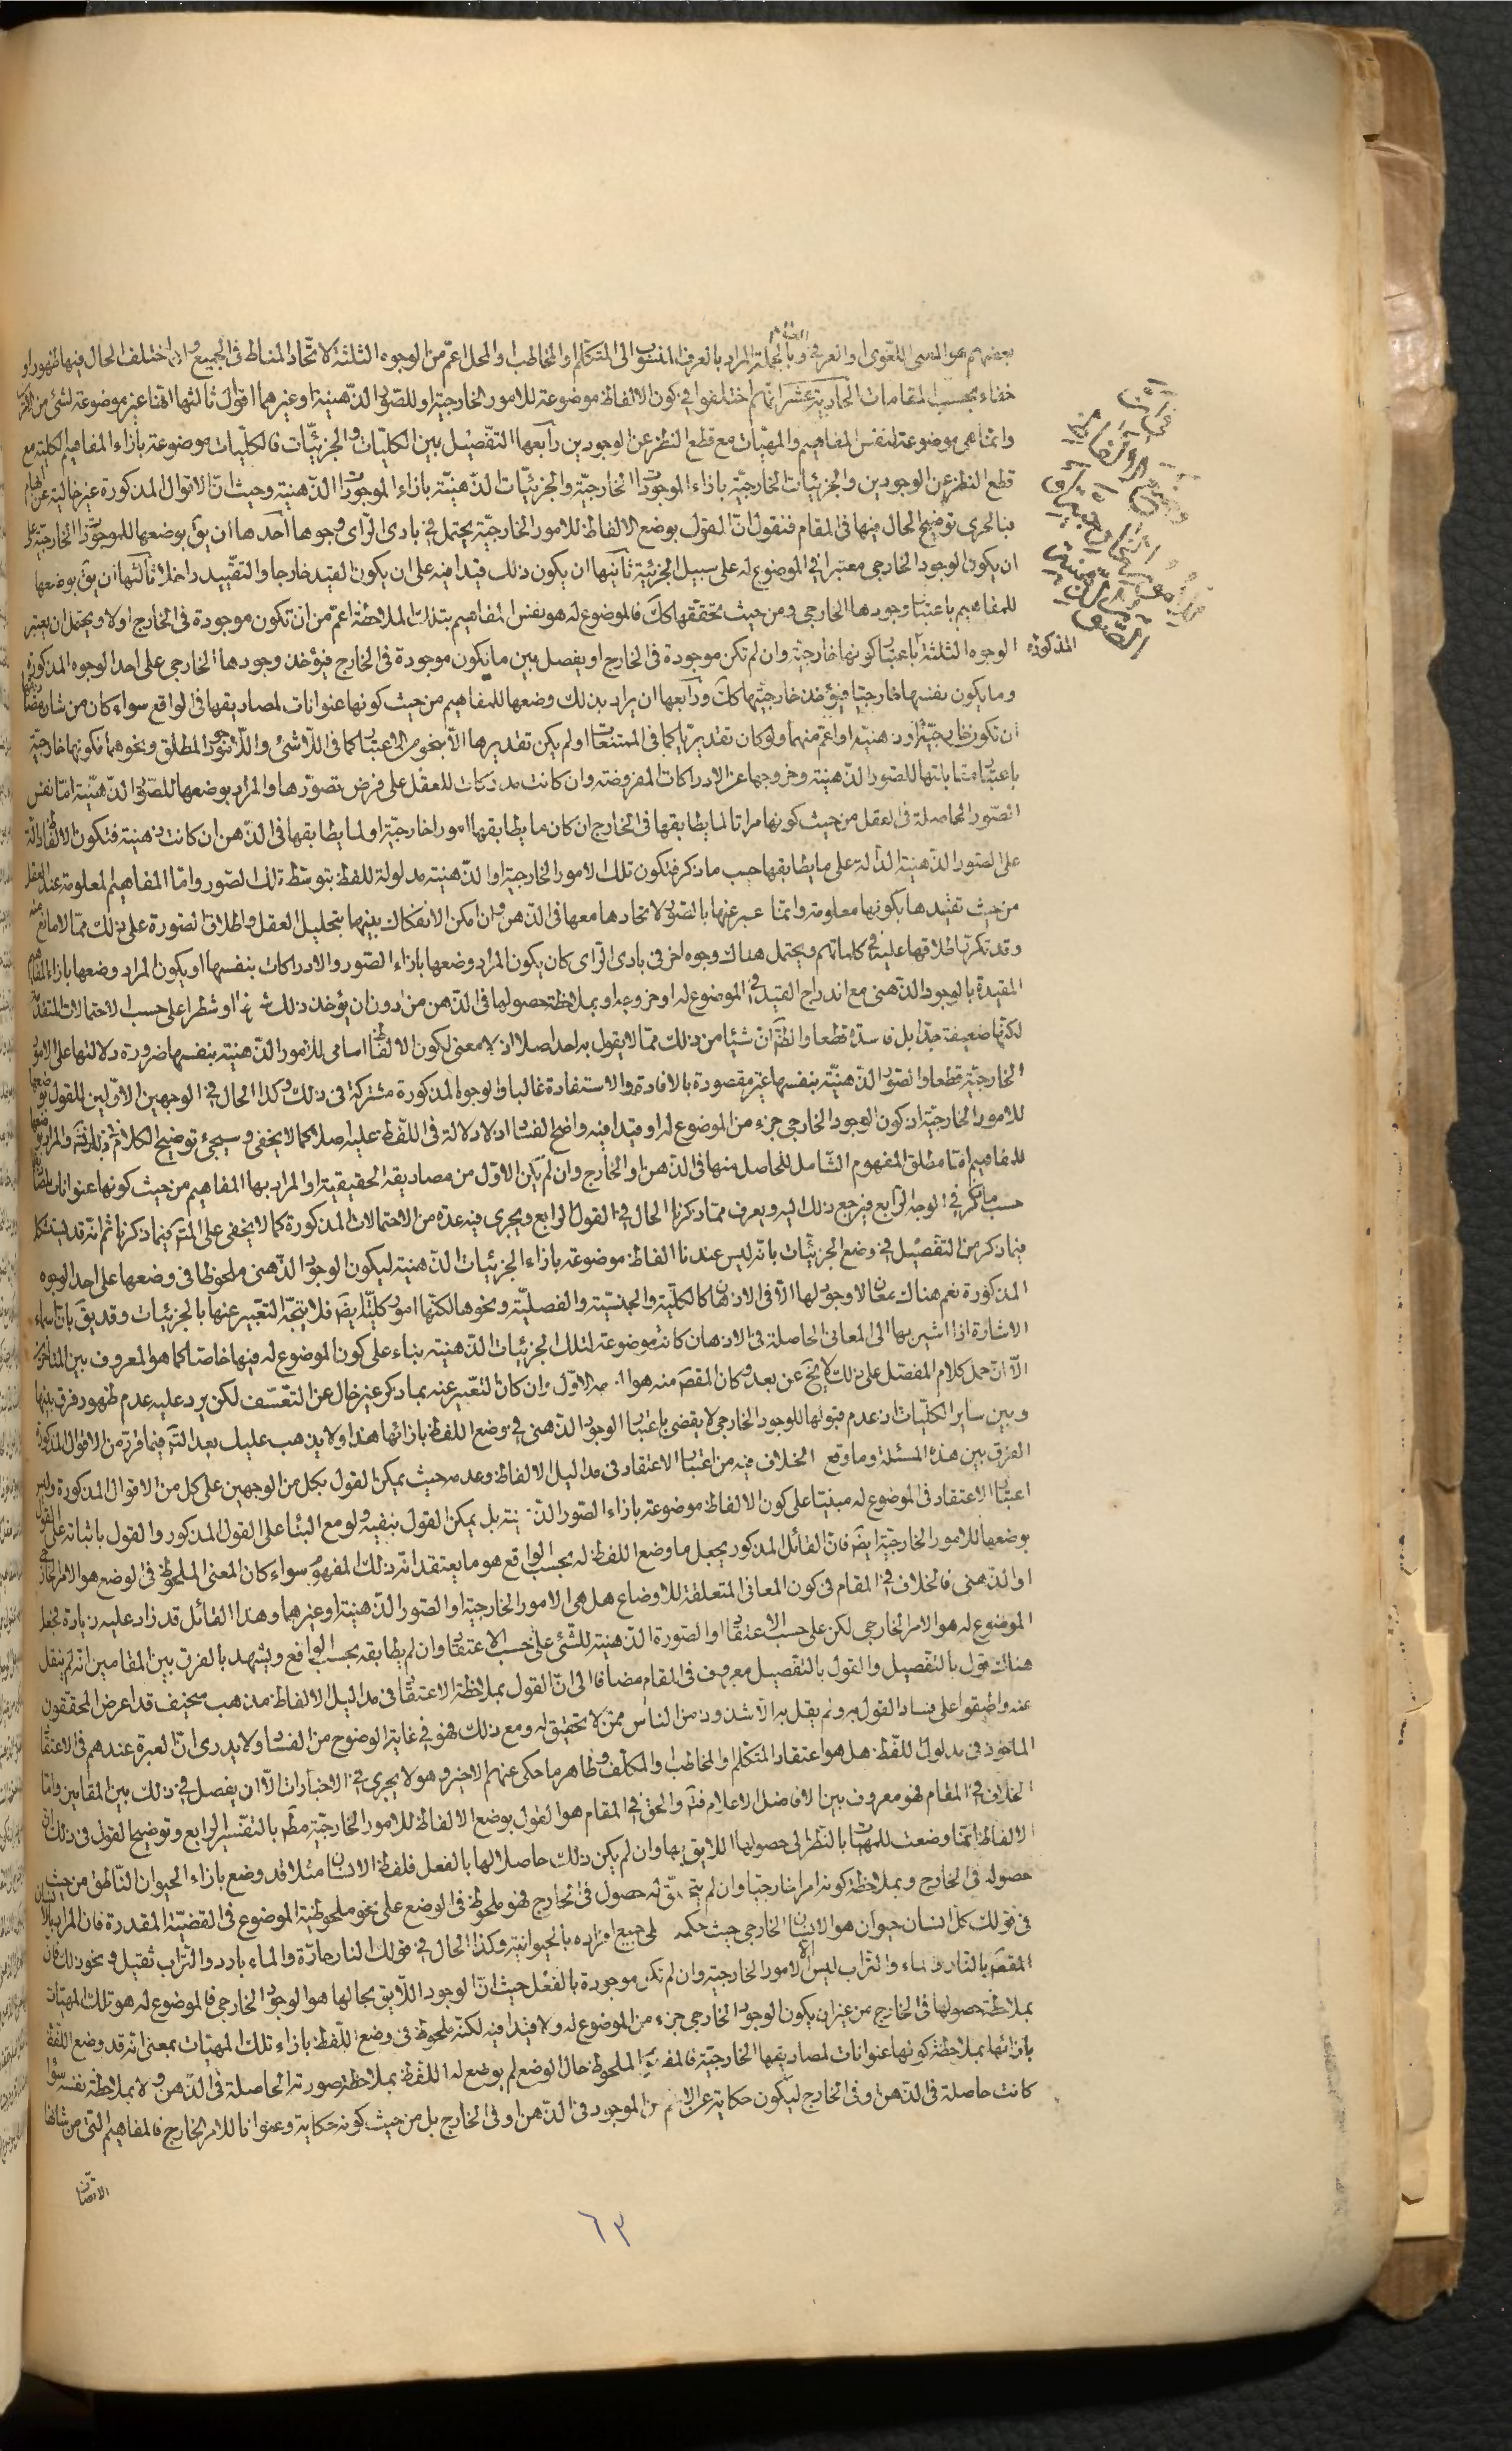 بعضهم هو المعنى اللغوى او العرفى وبالجملة المراد بالعرف المنسوب الى المتكلم او المخاطب او المحل اعمّ من الوجوه الثلثة لاتّحاد المناط فى الجميع وان اختلف الحال فيها ظهورا و
خفاء بحسب المقامات الحادية عشر انّهم اختلفوا فى كون الالفاظ موضوعة للامور الخارجيّة او للصّور الذّهنيّة او غيرهما اقوال ثالثها انّها غير موضوعة لشئ من
وانّما هى موضوعة لنفس المفاهيم والمهيّات مع قطع النظر عن الوجودين رابعها التّفصيل بين الكليّات والجزئيّات فالكليّات موضوعة بازاء المفاهيم الكلية مع
قطع النظر عن الوجودين والجزئيّات الخارجيّة بازاء الموجودات الخارجيّة والجزئيّات الذّهنيّة بازاء الموجودات الذّهنيّة وحيث انّ الاقوال المذكورة غير خالية عن
فبالحرى توضيح الحال فيها فى المقام فنقول انّ القول بوضع الالفاظ للامور الخارجيّة يحتمل فى بادى الراى وجوها احدها ان يق بوضعها للموجودات الخارجيّة
ان يكون الوجود الخارجى معتبرا فى الموضوع له على سبيل الجزئية ثانيها ان يكون ذلك قيدا فيه على ان يكون القيد خارجا والتّقييد داخلا ثالثها ان يق بوضعها
للمفاهيم باعتبار وجودها الخارجى ومن حيث تحققها كك فالموضوع له هو نفس المفاهيم بتلك الملاحظة اعمّ من ان تكون موجودة فى الخارج او لا ويحتمل ان يعتبر
المذكورة الوجوه الثلثة باعتبار كونها خارجية وان لم تكن موجودة فى الخارج او يفصل بين ما يكون موجودة فى الخارج فيؤخذ وجودها الخارجى على احد الوجوه المذكورة
وما يكون نفسها خارجيّا فيؤخذ خارجيّتها كك ورابعها ان يراد بذلك وضعها للمفاهيم من حيث كونها عنوانات لمصاديقها فى الواقع سواء كان من شان
ان تكون خارجيّة او ذهنيّة او اعمّ منهما ولو كان تقديريّا كما فى الممتنعات او لم يكن تقديرها الّا بنحو من الاعتبار كما فى اللّاشئ واللّاموجود المطلق ونحوهما فكونها خارجيّة
باعتبار مقابلتها للصّور الذّهنيّة وخروجها عن الادراكات المفروضة وان كانت مدركات للعقل على فرض تصوّرها والمراد بوضعها للصّور الذّهنيّة امّا نفس
الصّور الحاصلة فى العقل من حيث كونها مراتا لما يطابقها فى الخارج ان كان ما يطابقها امورا خارجيّة او لما يطابقها فى الذّهن ان كانت ذهنيّة فتكون الالفاظ دالّة
على الصّور الذّهنيّة الدّالة على ما يطابقها حسب ما ذكر فتكون تلك الامور الخارجيّة او الذّهنيّة مدلولة للفظ بتوسّط تلك الصّور وامّا المفاهيم المعلومة عند العقل
من حيث تقيّدها بكونها معلومة وانّما عبر عنها بالصّور لاتحادها معها فى الذّهن وان امكن الانفكاك بينهما بتحليل العقل واطلاق الصّورة على ذلك ممّا لا مانع منه
وقد تكرّر اطلاقها عليه فى كلماتهم ويحتمل هناك وجوه اخر فى بادى الراى كان يكون المراد وضعها بازاء الصّور والادراكات بنفسها او يكون المراد وضعها بازاء المفاهيم
المقيدة بالوجود الذّهنى مع اندراج القيد فى الموضوع له او خروجه او بملاحظة حصولها فى الذّهن من دون ان يؤخذ ذلك شرطا او شطرا على حسب الاحتمالات المتقدّمة
لكنّها ضعيفة جدّا بل فاسدة قطعا والظّ انّ شيئا من ذلك ممّا لا يقول به احد اصلا اذ لا معنى لكون الالفاظ اسامى للامور الذّهنيّة بنفسها ضرورة دلالتها على الامور
الخارجيّة قطعا والصّور الذّهنيّة بنفسها غير مقصودة بالافادة والاستفادة غالبا والوجوه المذكورة مشتركة فى ذلك وكذا الحال فى الوجهين الاوّلين للقول بوضعها
للامور الخارجيّة اذ كون الوجود الخارجى جزء من الموضوع له او قيدا فيه واضح الفساد اذ لا دلالة فى اللّفظ عليه اصلا كما لا يخفى وسيجئ توضيح الكلام فى ذلك والمراد بوضعها
للمفاهيم امّا مطلق المفهوم الشّامل للحاصل منها فى الذّهن او الخارج وان لم يكن الاوّل من مصاديقه الحقيقية او المراد بها المفاهيم من حيث كونها عنوانات لمصاديقها
حسب ما ذكر فى الوجه الرّابع فيرجع ذلك اليه ويعرف ممّا ذكرنا الحال فى القول الرابع ويجرى فيه عدة من الاحتمالات المذكورة كما لا يخفى على المت فيما ذكرنا ثم انّه قد يستشكل
فيما ذكر من التّفصيل فى وضع الجزئيّات بانّه ليس عندنا الفاظ موضوعة بازاء الجزئيات الذّهنيّة ليكون الوجود الذّهنى ملحوظا فى وضعها على احد الوجوه
المذكورة نعم هناك معان لا وجود لها الّا فى الاذهان كالكلّيّة والجنسيّة والفصليّة ونحوها لكنّها امور كليّة ايضا فلا يتّجه التعبير عنها بالجزئيات وقد يق بانّ اسماء
الاشارة اذا اشير بها الى المعانى الحاصلة فى الاذهان كانت موضوعة لتلك الجزئيات الذّهنيّة بناء على كون الموضوع له فيها خاصّا كما هو المعروف بين المتاخرين
الّا انّ حمل كلام المفصّل على ذلك لا يخ عن بعد وكان المقصود منه هو الاوّل وان كان التعبير عنه بما ذكر غير خال عن التعسّف لكن يرد عليه عدم ظهور فرق بينها
وبين ساير الكلّيّات اذ عدم قبولها للوجود الخارجى لا يقضى باعتبار الوجود الذّهنى فى وضع اللفظ بازائها هذا ولا يذهب عليك بعد التّ فيما قرّر من الاقوال المذكورة
الفرق بين هذه المسئلة وما وقع الخلاف فيه من اعتبار الاعتقاد فى مداليل الالفاظ وعدمه حيث يمكن القول بكل من الوجهين على كل من الاقوال المذكورة وليس
اعتبار الاعتقاد فى الموضوع له مبنيّا على كون الالفاظ موضوعة بازاء الصّور الذّهنيّة بل يمكن القول بنفيه ولو مع البناء على القول المذكور والقول باثباته على القول
بوضعها للامور الخارجيّة ايضا فانّ القائل المذكور يجعل ما وضع اللفظ له بحسب الواقع هو ما يعتقد انّه ذلك المفهوم سواء كان المعنى الملحوظ فى الوضع هو الامر الخارجى
او الذّهنى فالخلاف فى المقام فى كون المعانى المتعلقة للاوضاع هل هى الامور الخارجيّة او الصّور الذّهنيّة او غيرهما وهذا القائل قد زاد عليه زيادة فجعل
الموضوع له هو الامر الخارجى لكن على حسب الاعتقاد او الصّورة الذّهنيّة للشّئ على حسب الاعتقاد وان لم يطابقه بحسب الواقع ويشهد بالفرق بين المقامين انّه لم ينقل
هناك قول بالتّفصيل والقول بالتّفصيل معروف فى المقام مضافا الى انّ القول بملاحظة الاعتقاد فى مداليل الالفاظ مذهب سخيف قد اعرض المحقّقون
عنه واطبقوا على فساد القول به ولم يقل به الّا شذوذ من الناس ممّن لا تحقيق له ومع ذلك فهو فى غاية الوضوح من الفساد ولا يدرى انّ العبرة عندهم فى الاعتقاد
الماخوذ فى مدلول اللّفظ هل هو اعتقاد المتكلّم او المخاطب او المكلّف وظاهر ما حكى عنهم الاخير وهو لا يجرى فى الاخبارات الّا ان يفصل فى ذلك بين المقامين وامّا
الخلاف فى المقام فهو معروف بين الافاضل الاعلام فتم والحق فى المقام هو القول بوضع الالفاظ للامور الخارجيّة مط بالتفسير الرابع وتوضيح القول فى ذلك انّ
الالفاظ انّما وضعت للمهيّات بالنّظر الى حصولها اللايق بها وان لم يكن ذلك حاصلا لها بالفعل فلفظ الانسان مثلا قد وضع بازاء الحيوان النّاطق من حيث
حصوله فى الخارج وبملاحظة كونه امرا خارجيّا وان لم يتحقّق له حصول فى الخارج فهو ملحوظ فى الوضع على نحو ملحوظية الموضوع فى القضيّة المقدرة فان المراد بالانسان
فى قولك كل انسان حيوان هو الانسان الخارجى حيث حكمه على جميع افراده بالحيوانية وكذا الحال فى قولك النار حارّة والماء بارد والتّراب ثقيل ونحو ذلك فان
المقصود بالنّار والماء والتّراب ليس الّا الامور الخارجية وان لم تكن موجودة بالفعل حيث انّ الوجود اللّايق بحالها هو الوجود الخارجى فالموضوع له هو تلك المهيّات
بملاحظة حصولها فى الخارج من غير ان يكون الوجود الخارجى جزء من الموضوع له ولا قيدا فيه لكنّه ملحوظ فى وضع اللّفظ بازاء تلك المهيّات بمعنى انّه قد وضع اللّفظ
بازائها بملاحظة كونها عنوانات لمصاديقها الخارجيّة فالمفهوم الملحوظ حال الوضع لم يوضع له اللّفظ بملاحظة صورته الحاصلة فى الذّهن ولا بملاحظة نفسه سواء
كانت حاصلة فى الذّهن او فى الخارج ليكون حكاية عن الاعم من الموجود فى الذّهن او فى الخارج بل من حيث كونه حكاية وعنوانا للامر الخارج فالمفاهيم التى من شانها
الاتصاف
٦٣